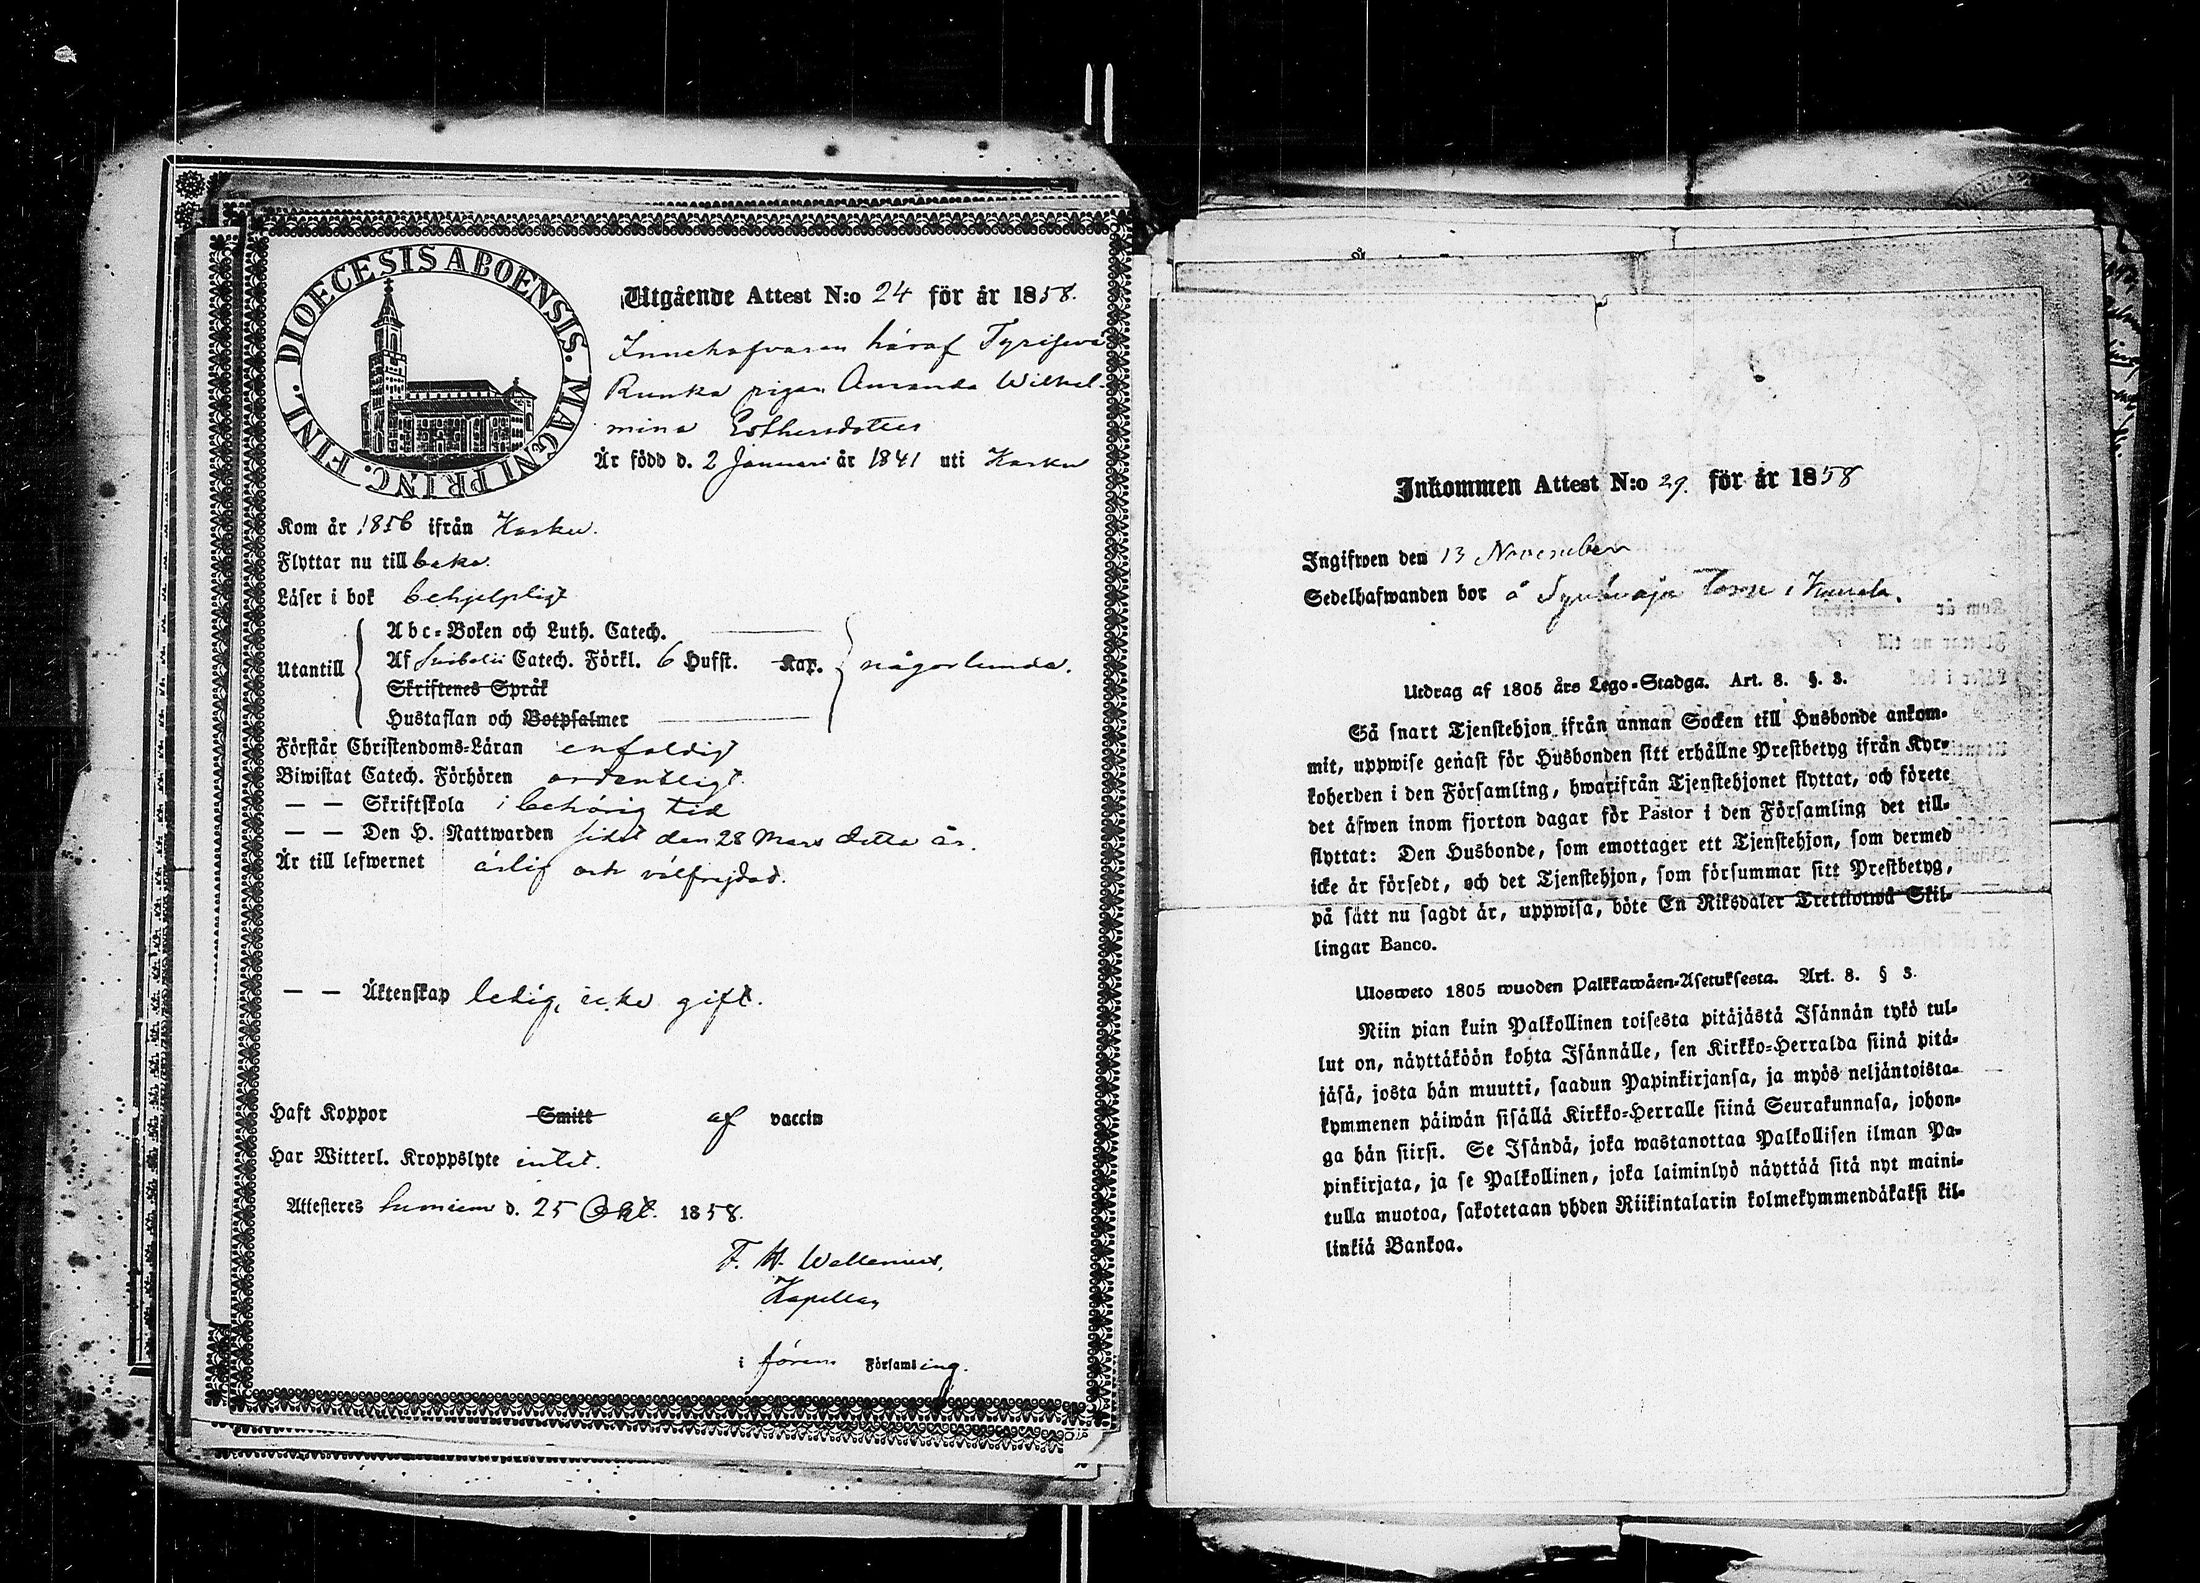 DIOECESIS ABOENSIS. MAGNI PRINC. FINL.
Utgående Attest N:o 24 för år 1858.
Innehafvaren häraf
Runka pigan Amanda Wilhel-
mina
Är född d. 2 Januari år 1841 uti Karku
Kom år 1856 ifrån Karku.
Flyttar nu till
Läser i bok behjelpligt
Utantill
Abc-Boken och Luth. Catech.
Af Svebelii Catech. Förkl. 6 Hufst. Kap.
Skriftenes Språk
Hustaflan och Botpsalmer
någorlunda.
Förstår Christendoms-Läran enfaldigt
Biwistat Catech. Förhören ordentligt
— — Skriftskola i behörig tid
— — Den H. Nattwarden sidst den 28 Mars detta år.
Är till lefwernet ärlig och välfrejdad.
— — Äktenskap ledig, icke gift.
Haft Koppor Smitt af vaccin
Har Witterl. Kroppslyte intet.
Attesteres d. 25 Okt. 1858.
F. H. Wallenius,
Kapellan
i Församling.
Inkommen Attest N:o 29. för år 1858
Ingifwen den 13 November
Sedelhafwanden bor å
Utdrag af 1805 års Lego-Stadga. Art. 8. §. 3.
Så snart Tjenstehjon ifrån annan Socken till Husbonde ankom-
mit, uppwise genast för Husbonden sitt erhållne Prestbetyg ifrån Kyr-
koherden i den Församling, hwarifrån Tjenstehjonet flyttat, och förete
det äfwen inom fjorton dagar för Pastor i den Församling det till-
flyttat: Den Husbonde, som emottager ett Tjenstehjon, som dermed
icke är försedt, och det Tjenstehjon, som försummar sitt Prestbetyg,
på sätt nu sagdt är, uppwisa, böte En Riksdaler Trettiotwå Skil-
lingar Banco.
Ulosweto 1805 wuoden Palkkawäen-Asetuksesta. Art. 8. § 3.
Niin pian kuin Palkollinen toisesta pitäjästä Isännän tykö tul-
lut on, näyttäköön kohta Isännälle, sen Kirkko-Herralda siinä pitä-
jäsä, josta hän muutti, saadun Papinkirjansa, ja myös neljäntoista-
kymmenen päiwän sisällä Kirkko-Herralle siinä Seurakunnasa, johon-
ga hän siirsi. Se Isändä, joka wastanottaa Palkollisen ilman Pa-
pinkirjata, ja se Palkollinen, joka laiminlyö näyttää sitä nyt maini-
tulla muotoa, sakotetaan yhden Riikintalarin kolmekymmendäkaksi kil-
linkiä Bankoa.